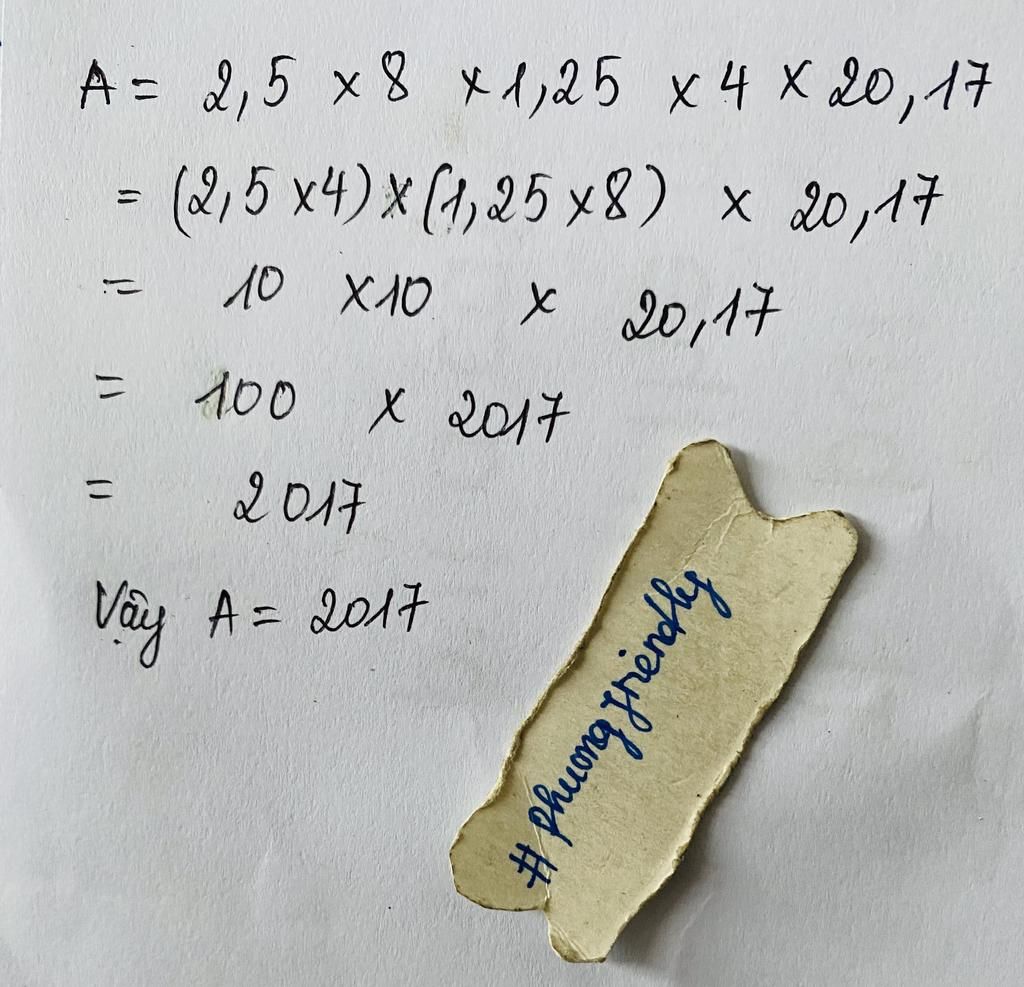 A = 2,5 x 8 x 1,25 x 4 x 20,17
= (2,5 x 4) x (1,25 x 8) x 20,17
= 10 x 10 x 20,17
= 100 x 2017
= 2017
Vậy A = 2017
# phuong friendly